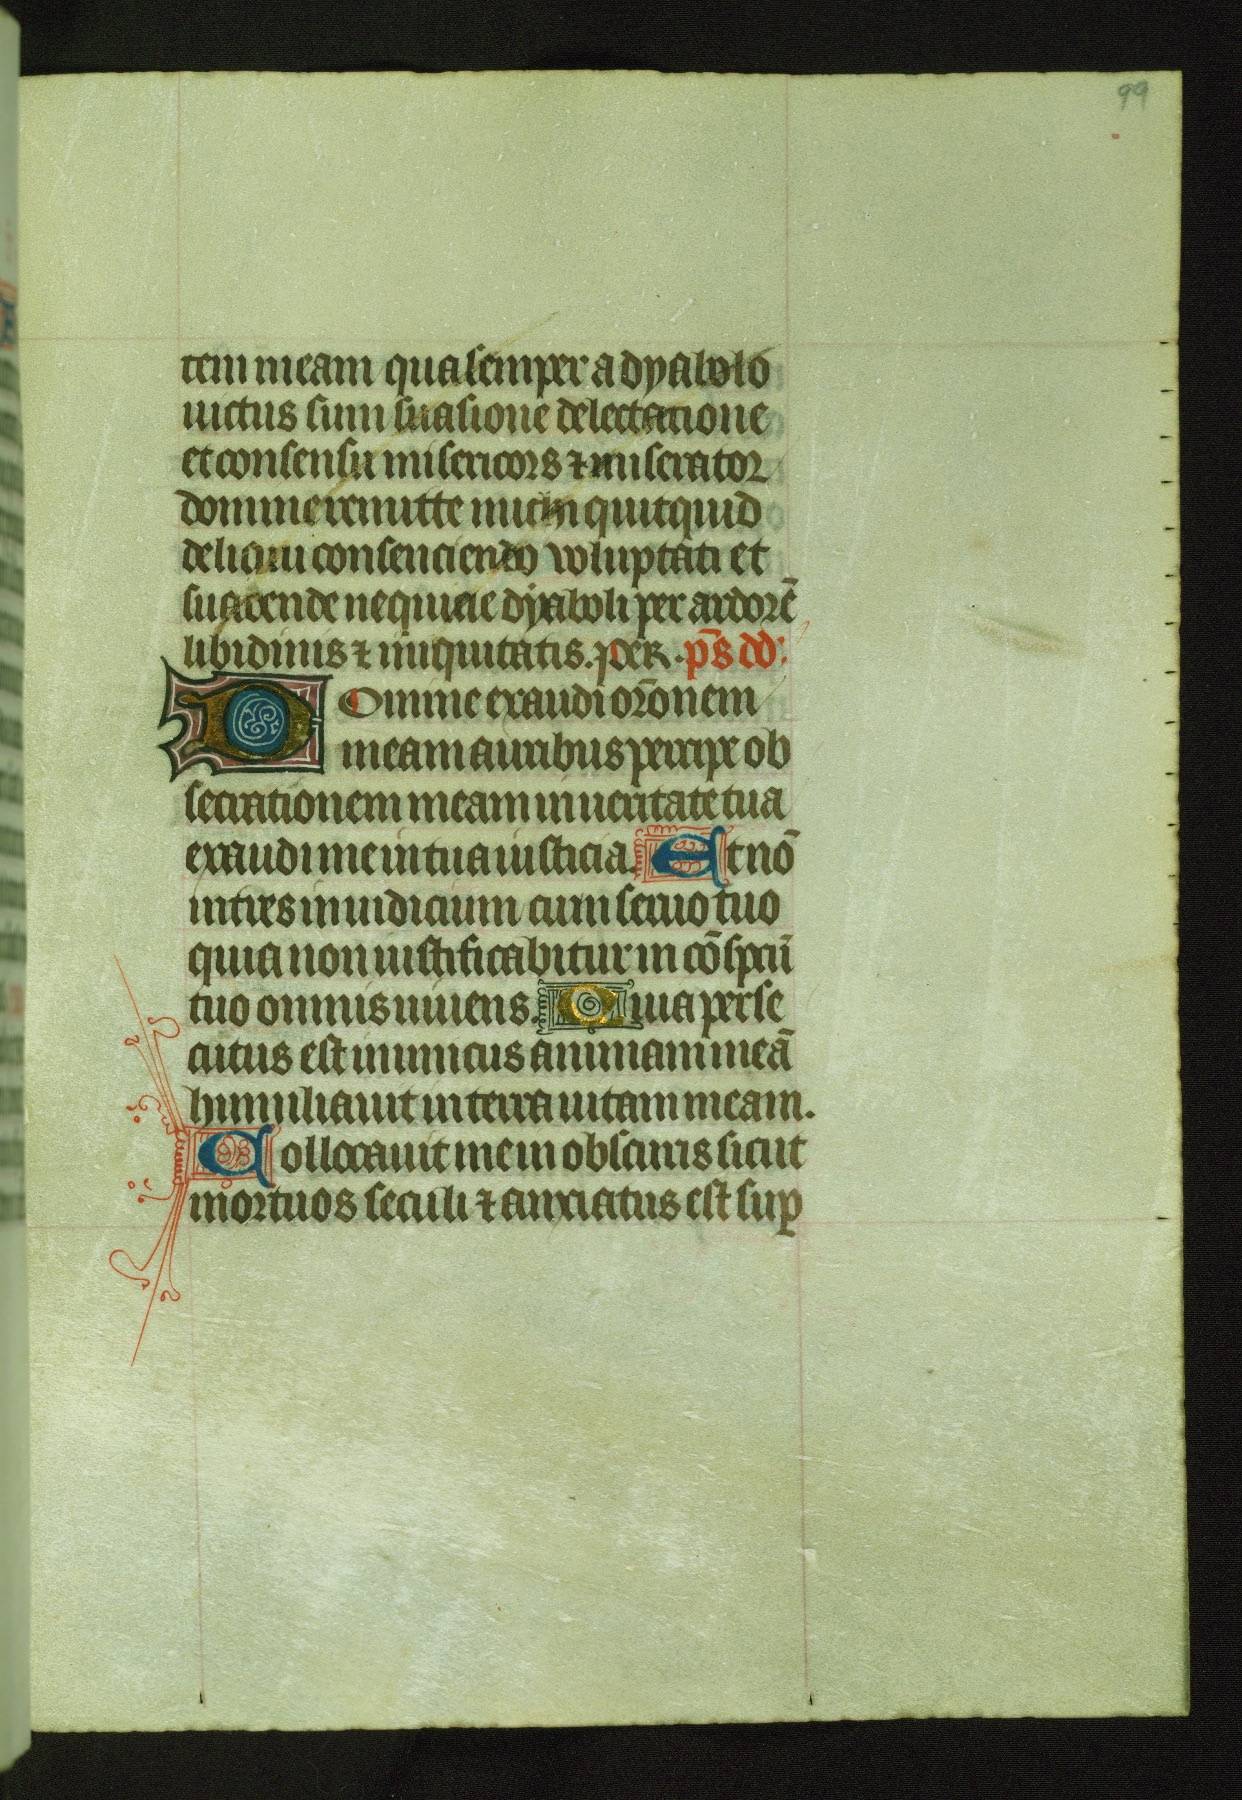 99
tem meam qua semper a dyabolo
uictus sum suasione delectatione
et consensu misericors ⁊ miserator
domine remitte michi quitquid
deliqui consenciendo voluptati et
suadende nequicie dyaboli per ardorē
libidinis ⁊ iniquitatis. per. ps̄ dd:
Domine exaudi orōnem
meam auribus percipe ob
secrationem meam in ueritate tua
exaudi me in tua iusticia. Et nō
intres in iudicium cum seruo tuo
quia non iustificabitur in cōspectū
tuo omnis uiuens. Quia perse
cutus est inimicus animam meā
humiliauit in terra uitam meam.
Collocauit me in obscuris sicut
mortuos seculi ⁊ anxiatus est sup